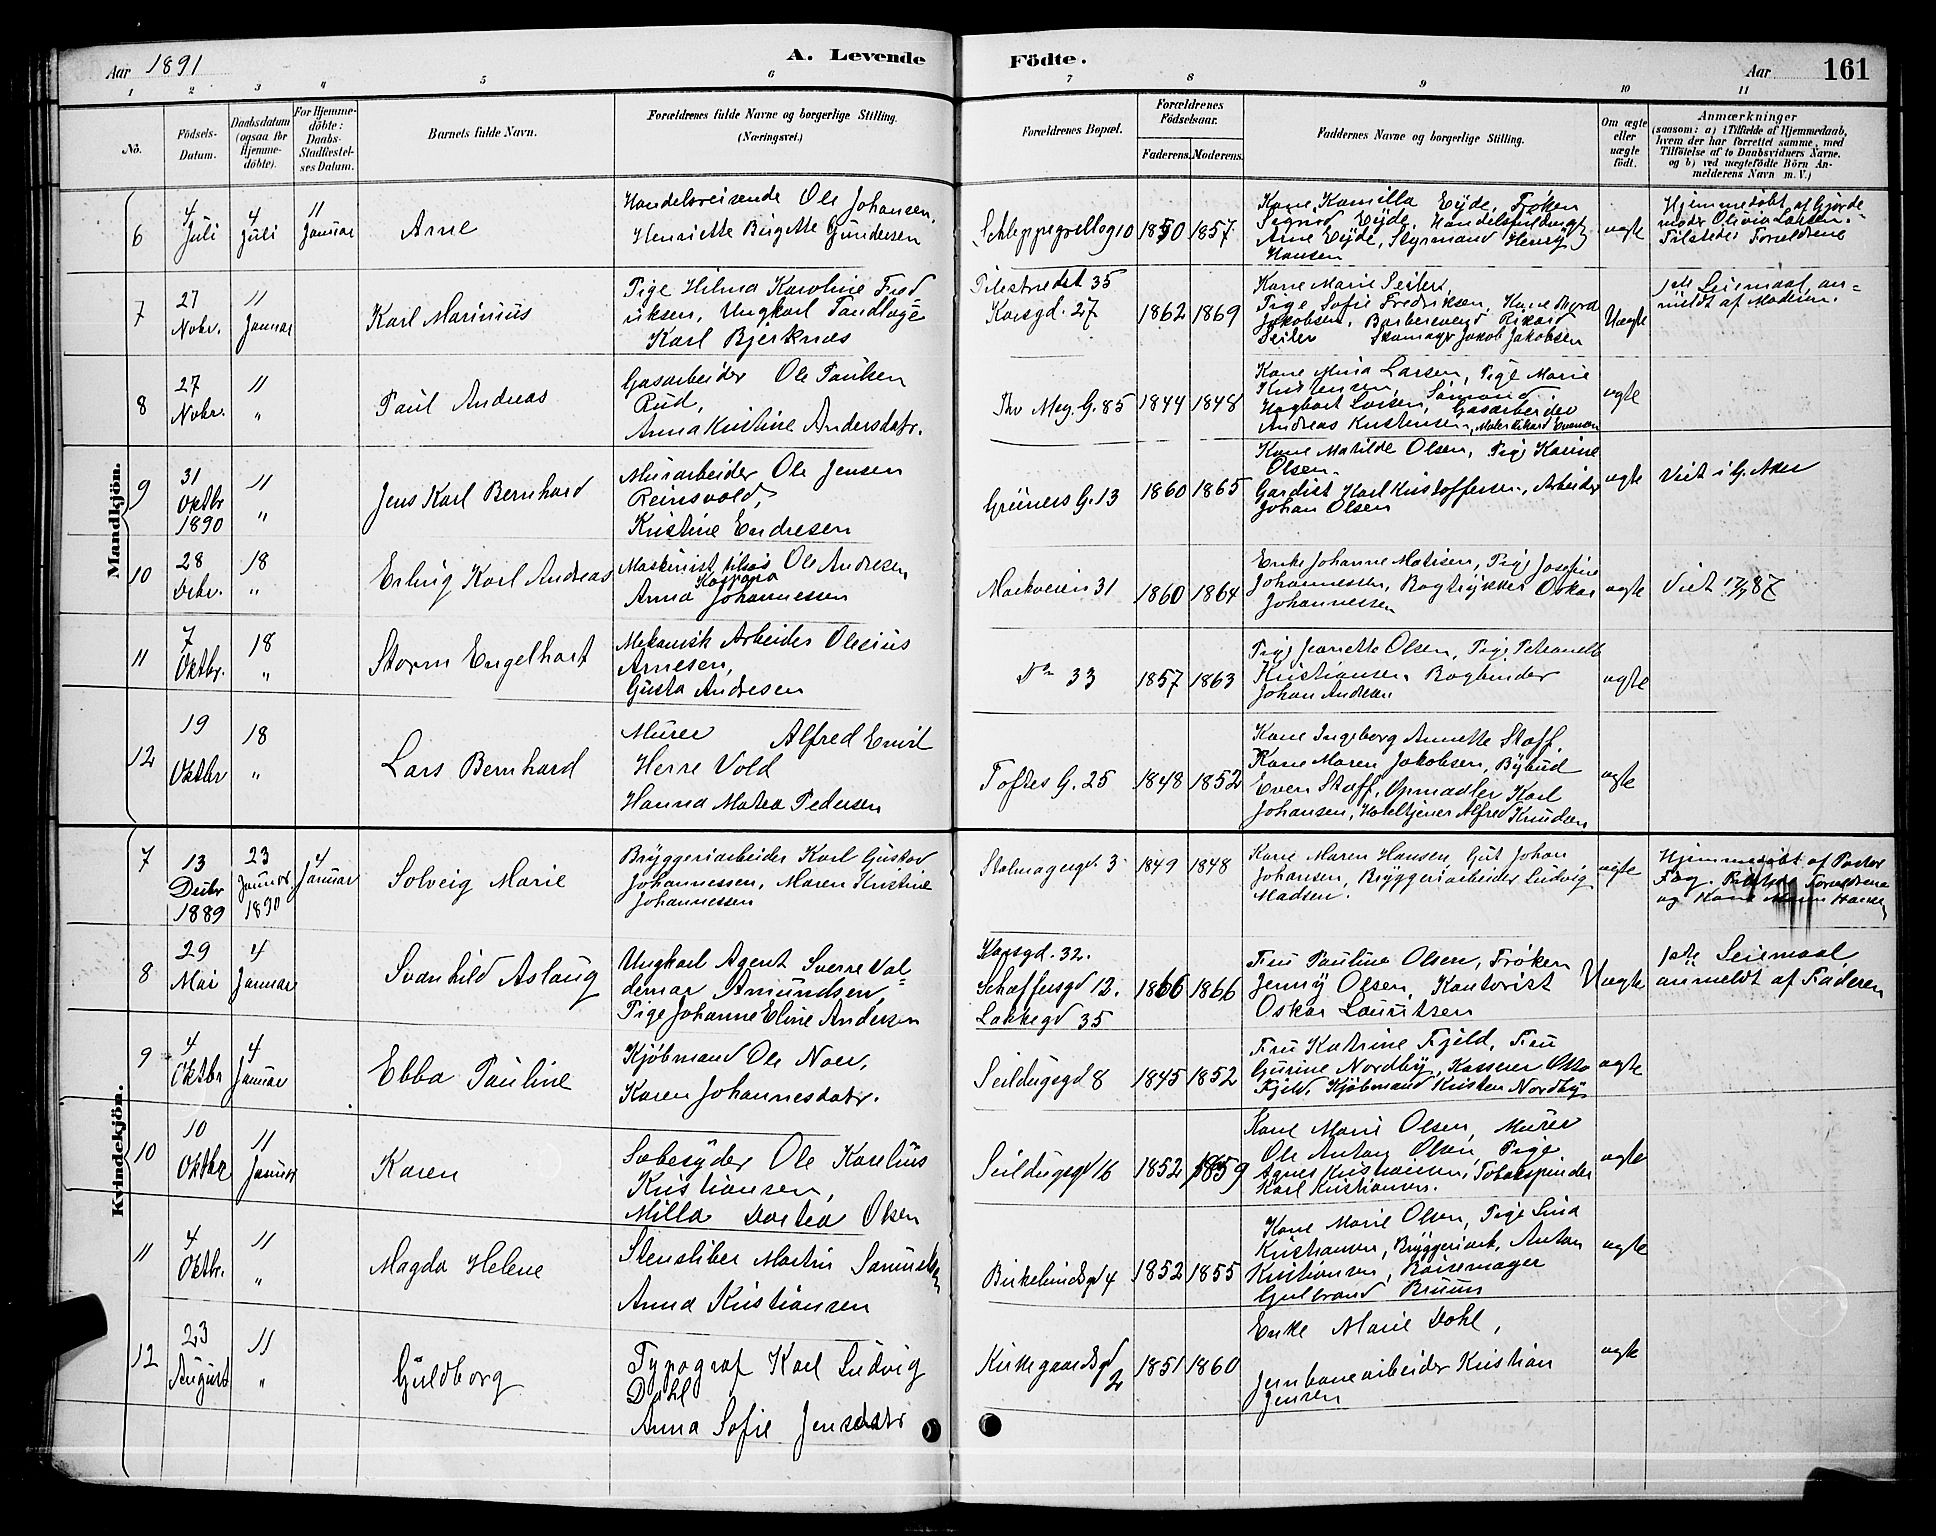 Aar 1891
A. Levende
Födte.
Aar 161
1 2 3 4 5 6 7 8 9 10 11
No.
Födsels-
Datum.
Daabsdatum
(ogsaa for
Hjemme-
döbte).
For Hjemme-
döbte:
Daabs-
Stadfæstel-
ses Datum.
Barnets fulde Navn.
Forældrenes fulde Navne og borgerlige Stilling.
(Næringsvei.)
Forældrenes Bopæl.
Forældrenes
Födselsaar.
Faderens. Moderens.
Faddernes Navne og borgerlige Stilling.
Om ægte
eller
uægte
födt.
Anmærkninger
(saasom: a) i Tilfælde af Hjemmedaab,
hvem der har forrettet samme, med
Tilföielse af to Daabsvidners Navne.
og b) ved uægtefödte Börn An-
melderens Navn m. V.)
Mandkjön.
6
4
Juli
4
Juli
11
Januar
Arne
Handelsreisende Ole Johansen,
Henriette Birgitte Gundersen
Schleppegrellsg 10
1850 1857
Kone Kamilla Eyde, Frøken
Sigrid Eyde, Handelsfuldmgt
Arne Eyde, Styrmand Henry
Hansen
ægte
Hjemmedøbt af Gjorde-
moder Olivia Larsen.
Tilstede: Forældrene
7
27
Novbr.
11
Januar
Karl Marinius
Pige Hilma Karoline Fred
riksen, Ungkarl Tandlæge
Karl Bjerknæs
Pilestrædet 35
Korsgd. 27
1862 1869
Kone Marie Seiler,
Pige Sofie Fredriksen, Kone
Jakobsen, Barbersvend Rikard
Seiler Skomager Jakob Jakobsen
Uægte
1ste Leiermaal, an-
meldt af Moderen.
8
27
Novbr.
11
"
Paul Andreas
Gasarbeider Ole Paulsen
Rud,
Anna Kristine Andersdatr.
Thv Mey. G. 85
1844 1848
Kone Mina Larsen, Pige Marie
Kristensen, Sömand
Hagbart Larsen, Gasarbeider
Andreas Kristensen, Maler
ægte
9
31
Oktbr
1890
11
"
Jens Karl Bernhard
Murarbeider Ole Jensen
Reinsvold,
Kristine Endresen
Grüners G. 13
1860 1865
Kone Matilde Olsen, Pige Karine
Olsen.
Gardist Karl Kristoffersen, Arbeider
Johan Olsen
ægte
Viet i G. Aker
10
28
Decbr.
18
"
Erling Karl Andreas
Maskinist tilsøs Ole Andresen
Anna Johannessen
Markveien 31
1860 1864
Enke Johanne Matisen, Pige Josefine
Johannessen, Bogtrykker Oskar
Johannessen
ægte
Viet 87
11
7
Oktbr.
18
"
Storm Engelhart
Mekanisk Arbeider Olesius
Arnesen,
Gusta Andresen
Do 33
1857 1863
Pige Jeanette Olsen, Pige Petranelle
Kristiansen, Bogbinder
Johan Andresen
ægte
12
19
Oktbr
18
"
Lars Bernhard
Murer Alfred Emil
Herre Vold
Hanna Matea Pedersen
Toftes G. 25
1848 1852
Kone Ingeborg Annette Staff,
Kone Maren Jakobsen, Bybud
Even Staff, Opmadler Karl
Johansen, Hoteltjener Alfred Knudsen
ægte
Kvindekjön.
7
13
Decbr
1889
23
Januar
1890
4
Januar
Solveig Marie
Bryggeriarbeider Karl Gustav
Johannessen, Maren Kristine
Johannessen
Stolmagergd. 3
1849 1848
Kone Maren Hansen, Gut Johan
Johansen, Bryggeriarbeider Ludvig
Madsen.
ægte
Hjemmedøbt af Pastor
Fog. Forældrene
og Kone Maren Hansen
8
29
Mai
4
Januar
Svanhild Aslaug
Ungkarl Agent Sverre Val
demar Amundsen,
Pige Johanne Eline Andersen
Korsgd. 32.
Schaffersgd 12.
Lakkegd 35
1866 1866
Fru Pauline Olsen, Frøken
Jenny Olsen, Kontorist
Oskar Lauritsen
Uægte
1ste Leiemaal,
anmeldt af Faderen
9
4
Oktbr
4
Januar
Ebba Pauline
Kjøbmand Ole Noer,
Karen Johannesdatr.
Seildugsgd 8
1845 1852
Fru Katrine Fjeld, Fru
Gurine Nordby, Kasserer Otto
Fjeld, Kjøbmand Kristen Nordby
ægte
10
10
Oktbr
11
Januar
Karen
Sæbesyder Ole Karelius
Kristiansen,
Milla Dortea Olsen
Seildugsgd 16
1852 1859
Kone Marie Olsen, Murer
Ole Anton Olsen, Pige
Agnes Kristiansen, Tobakspinder
Karl Kristiansen.
ægte
11
4
Oktbr.
11
"
Magda Helene
Stensliber Martin Samuelsen
Anna Kristiansen
Birkelundsgd 4
1852 1855
Kone Marie Olsen, Pige Lina
Kristiansen, Bryggeriarb. Anton
Kristiansen,
Gulbrand Bruun
ægte
12
23
August
11
"
Guldborg
Typograf Karl Ludvig
Dahl
Anna Sofie Jensdatr
Kirkegaardsgd
2
1851 1860
Enke Marie Dahl,
Jernbanearbeider Kristian
Jensen
ægte